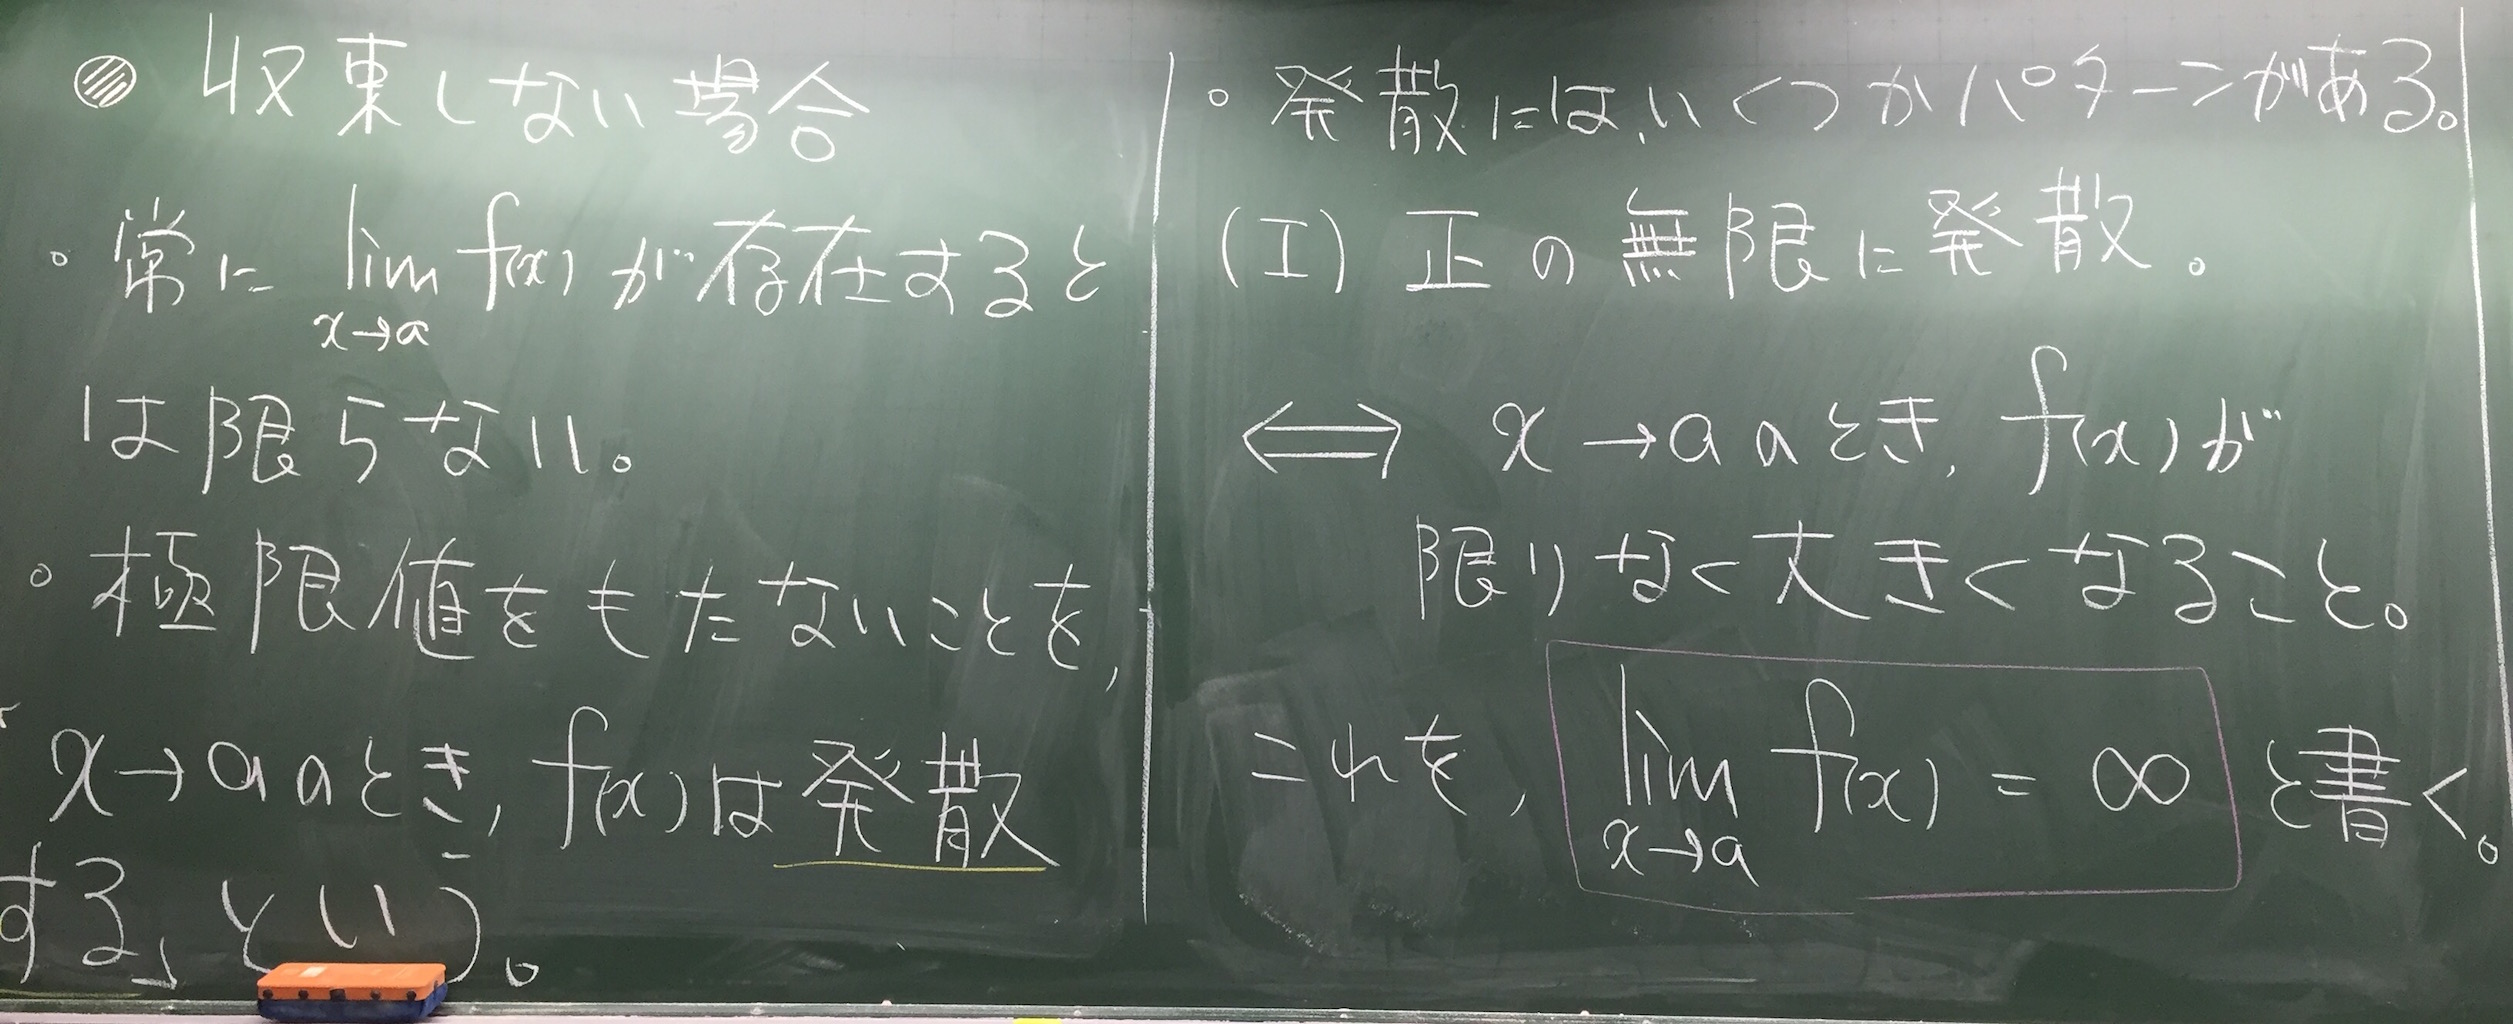 収束しない場合
。常に lim f(x) が存在すると
x→a
は限らない。
。極限値をもたないことを,
x→aのとき, f(x)は発散
する、という。
。発散には、いくつかパターンがある。
(I) 正の無限に発散。
⟺ x→aのとき, f(x)が
限りなく大きくなること。
これを, lim f(x) = ∞ と書く。
x→a